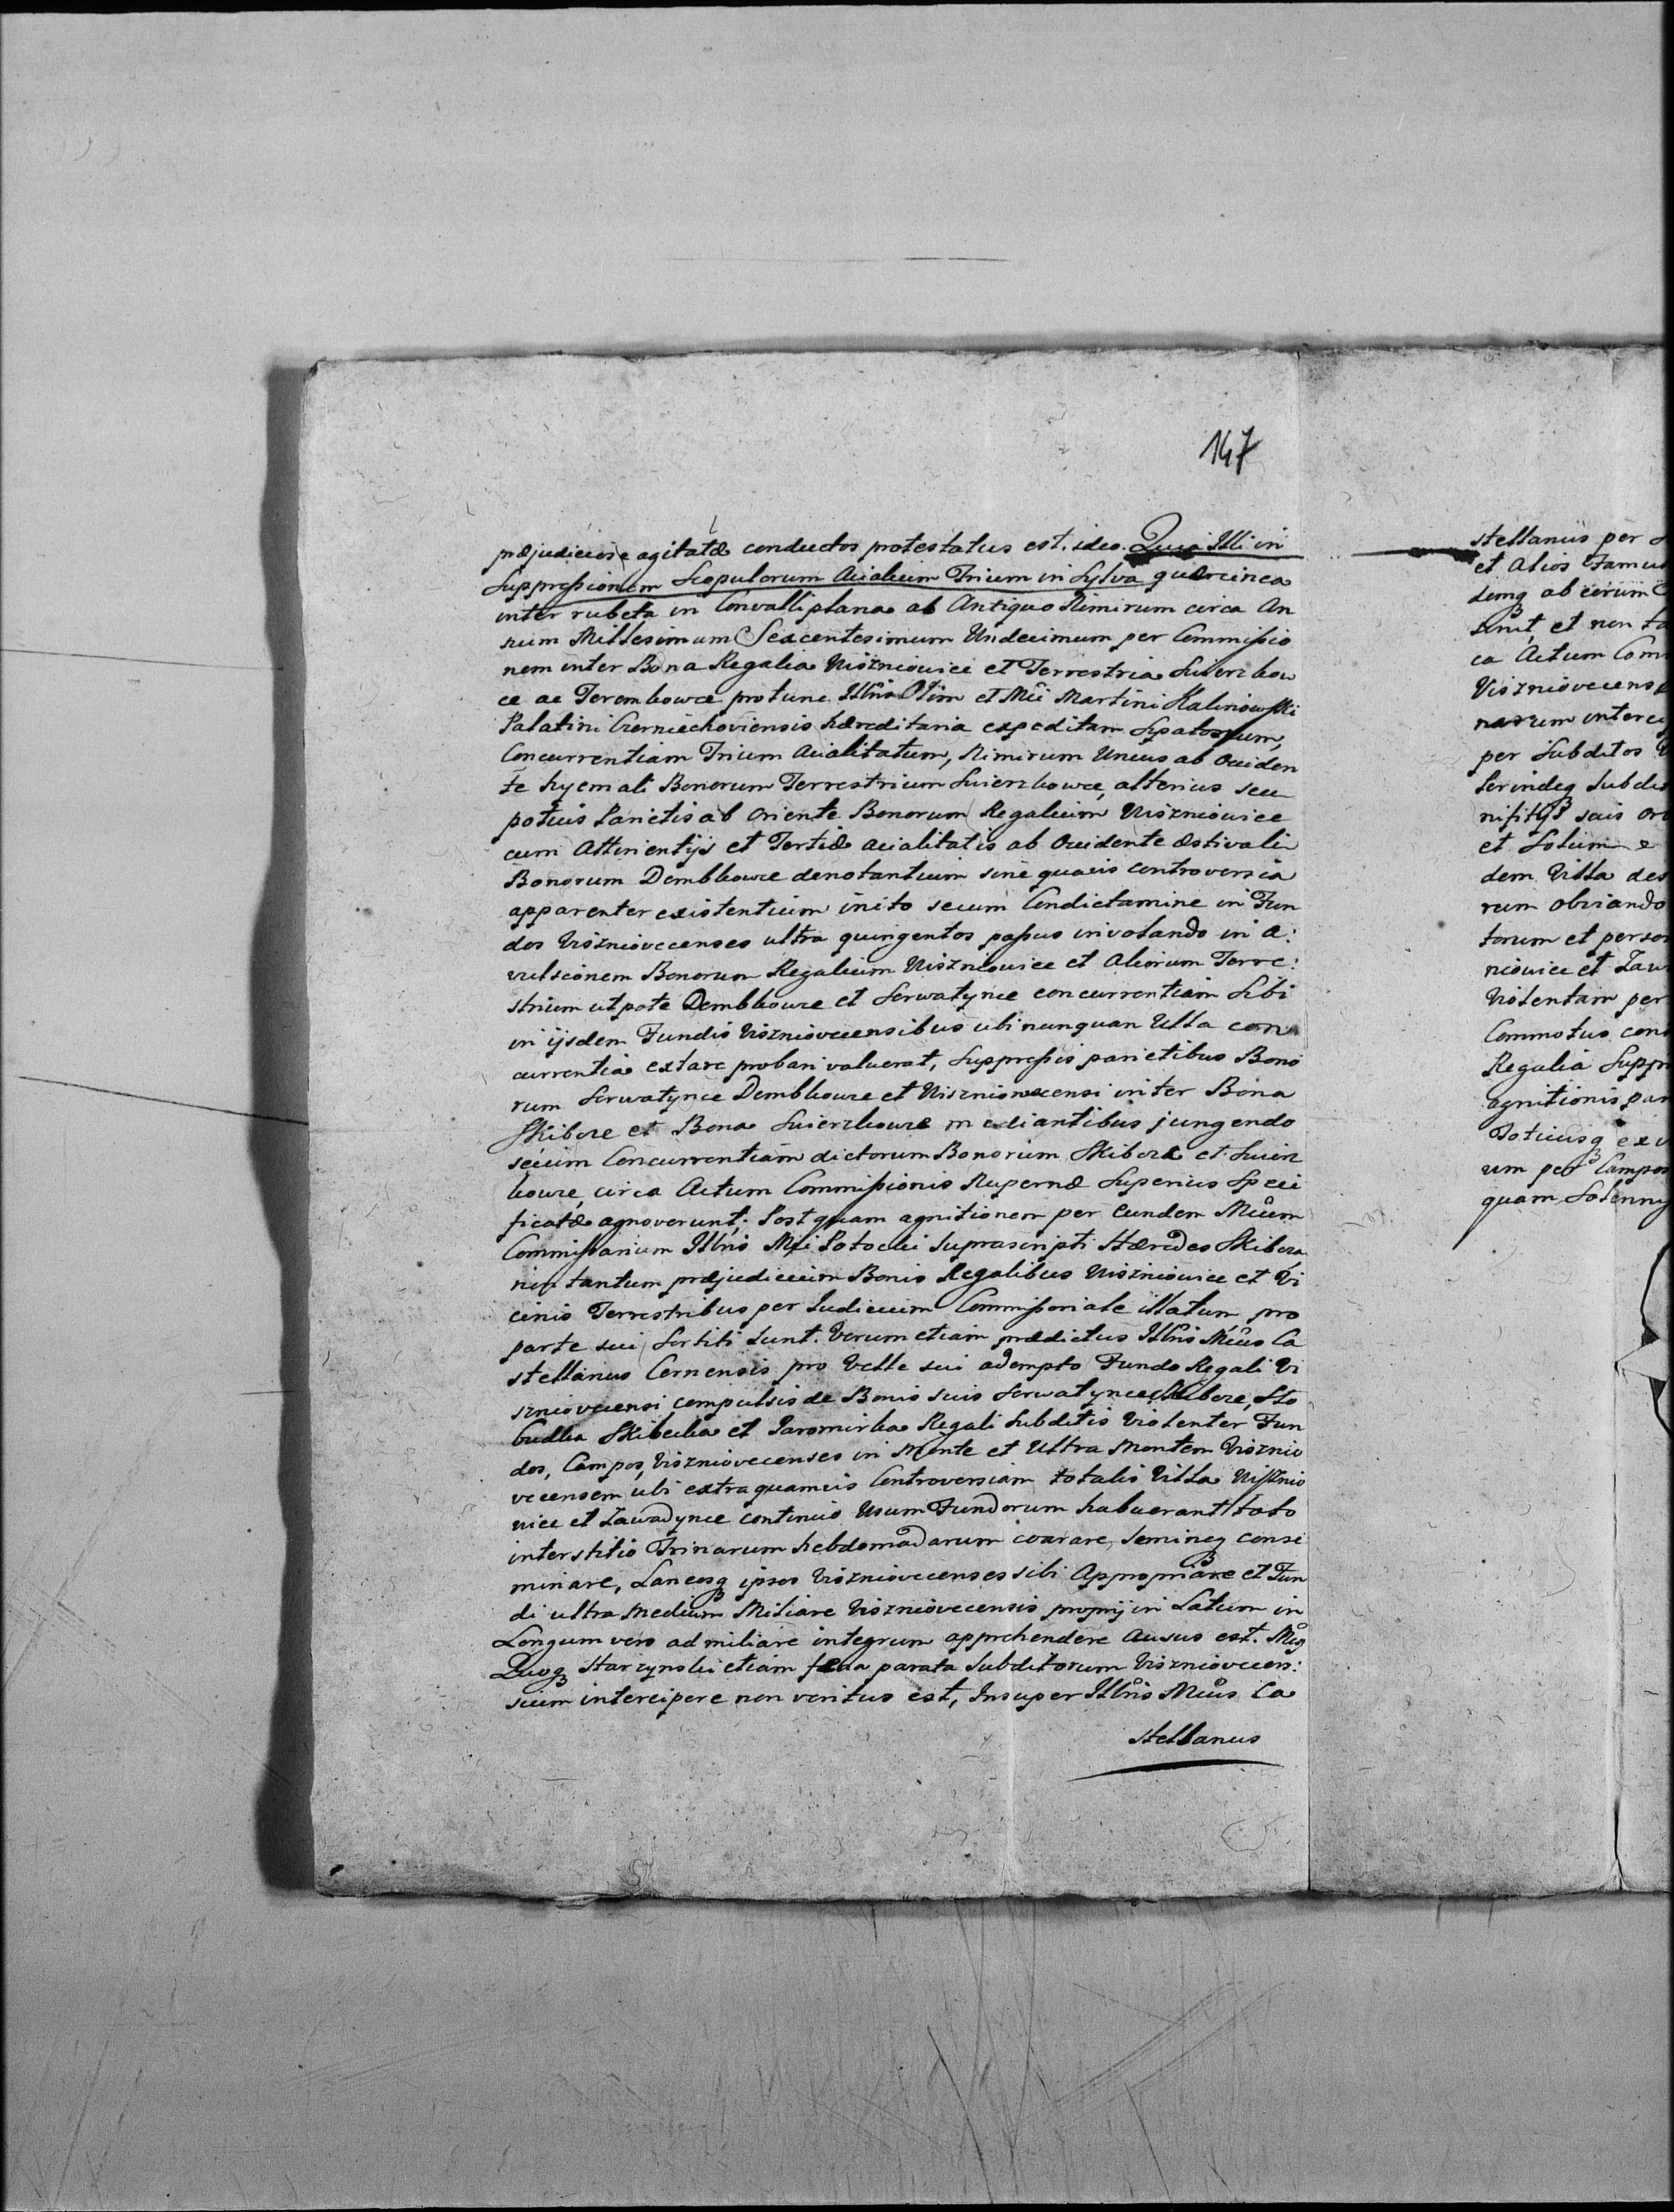 147
præjudiciose agitatæ conductos protestatus est. ideo. Quia Illi in
Suppressionem Scopulorum Acialium Trium in Sylva quercinea
inter rubeta in Convalli plana ab Antiquo Nimirum circa An
num Millesimum Sexcentesimum Undecimum per Commissio
nem inter Bona Regalia Wiszniowice et Terrestria Swierzkow
ce ac Terembowce pro tunc Illris Olim et Mci Martini Kalinowski
Palatini Czerniechoviensis hæreditaria expeditam Spatosum,
Concurrentiam Trium Acialitatum, Nimirum Unius ab Occiden
te hyemali Bonorum Terrestrium Swierzkowce, alterius seu
potius Parietis ab Oriente Bonorum Regalium Wiszniowice
cum Attinentijs et Tertiæ acialitatis ab Occidente æstivali
Bonorum Dembkowce denotantium sine quavis controversia
apparenter existentium inito secum Condictamine in Fun
dos Viszniovecenses ultra quingentos passus involando in a:
vulsionem Bonorum Regalium Wiszniowice et Aliorum Terre:
strium utpote Dembkowce et Serwatynce concurrentiam Sibi
in ijsdem Fundis Viszniovecensibus ubi nunquam Ulla con
currentia extare probari valuerat, Suppressis parietibus Bono
rum Serwatynce Dembkowce et Wiszniowecensi inter Bona
Skibore et Bona Swierzkowce mediantibus jungendo
secum Concurrentiam dictorum Bonorum Skibore et Swierz
kowce, circa Actum Commissionis Nupernæ Superius Speci
ficatæ agnoverunt; Post quam agnitionem per Eundem Mcum
Commissarium Illris Mci Potocki Suprascripti Hæredes Skibore
non tantum præjudicium Bonis Regalibus Wiszniowice et Vi
cinis Terrestribus per Iudicium Commissoriale illatum pro
parte sui Sortiti Sunt. Verum etiam prædictus Illris Mcus Ca
stellanus Cernensis pro Velle sui adempto Fundo Regali Vi
szniovecensi compulsis de Bonis suis Serwatynce, Skibore, Sto
budka Skibecka et Jaromirka Regali Subditis Violenter Fun
dos, Campos, Viszniovecenses in Monte et Ultra Montem Visznio
vecensem ubi extra quamvis Controversiam totalis Villa Wisznio
wice et Zawadynce continuo Usum Fundorum habuerant toto
interstitio Trinarum hebdomadarum exarare, Semineq conse
minare, Laneosq ipsos Viszniovecenses sibi Appropriare et Fun
di ultra Medium Miliare Viszniovecensis proprij in Latum in
Longum vero ad miliare integrum apprehendere Ausus est. Mcq
Duoq Starzynski etiam fæna parata Subditorum Viszniovecen:
sium intercipere non veritus est, Insuper Illris Mcus Ca
stellanus
stellanus per
et Alios Famu
demq ab eorum
sunt, et non ta
ca Actum Com
Viszniovecens
narum interce
per Subditos
Serindeq Subdi
nifitqs suis
et Solum
dem Villa des
rum obviando
torum et person
niowice et Zaw
Violentam per
Commotus con
Regalia Suppr
agnitionis par
Totiusq ex
um per Campos
quam Solenny